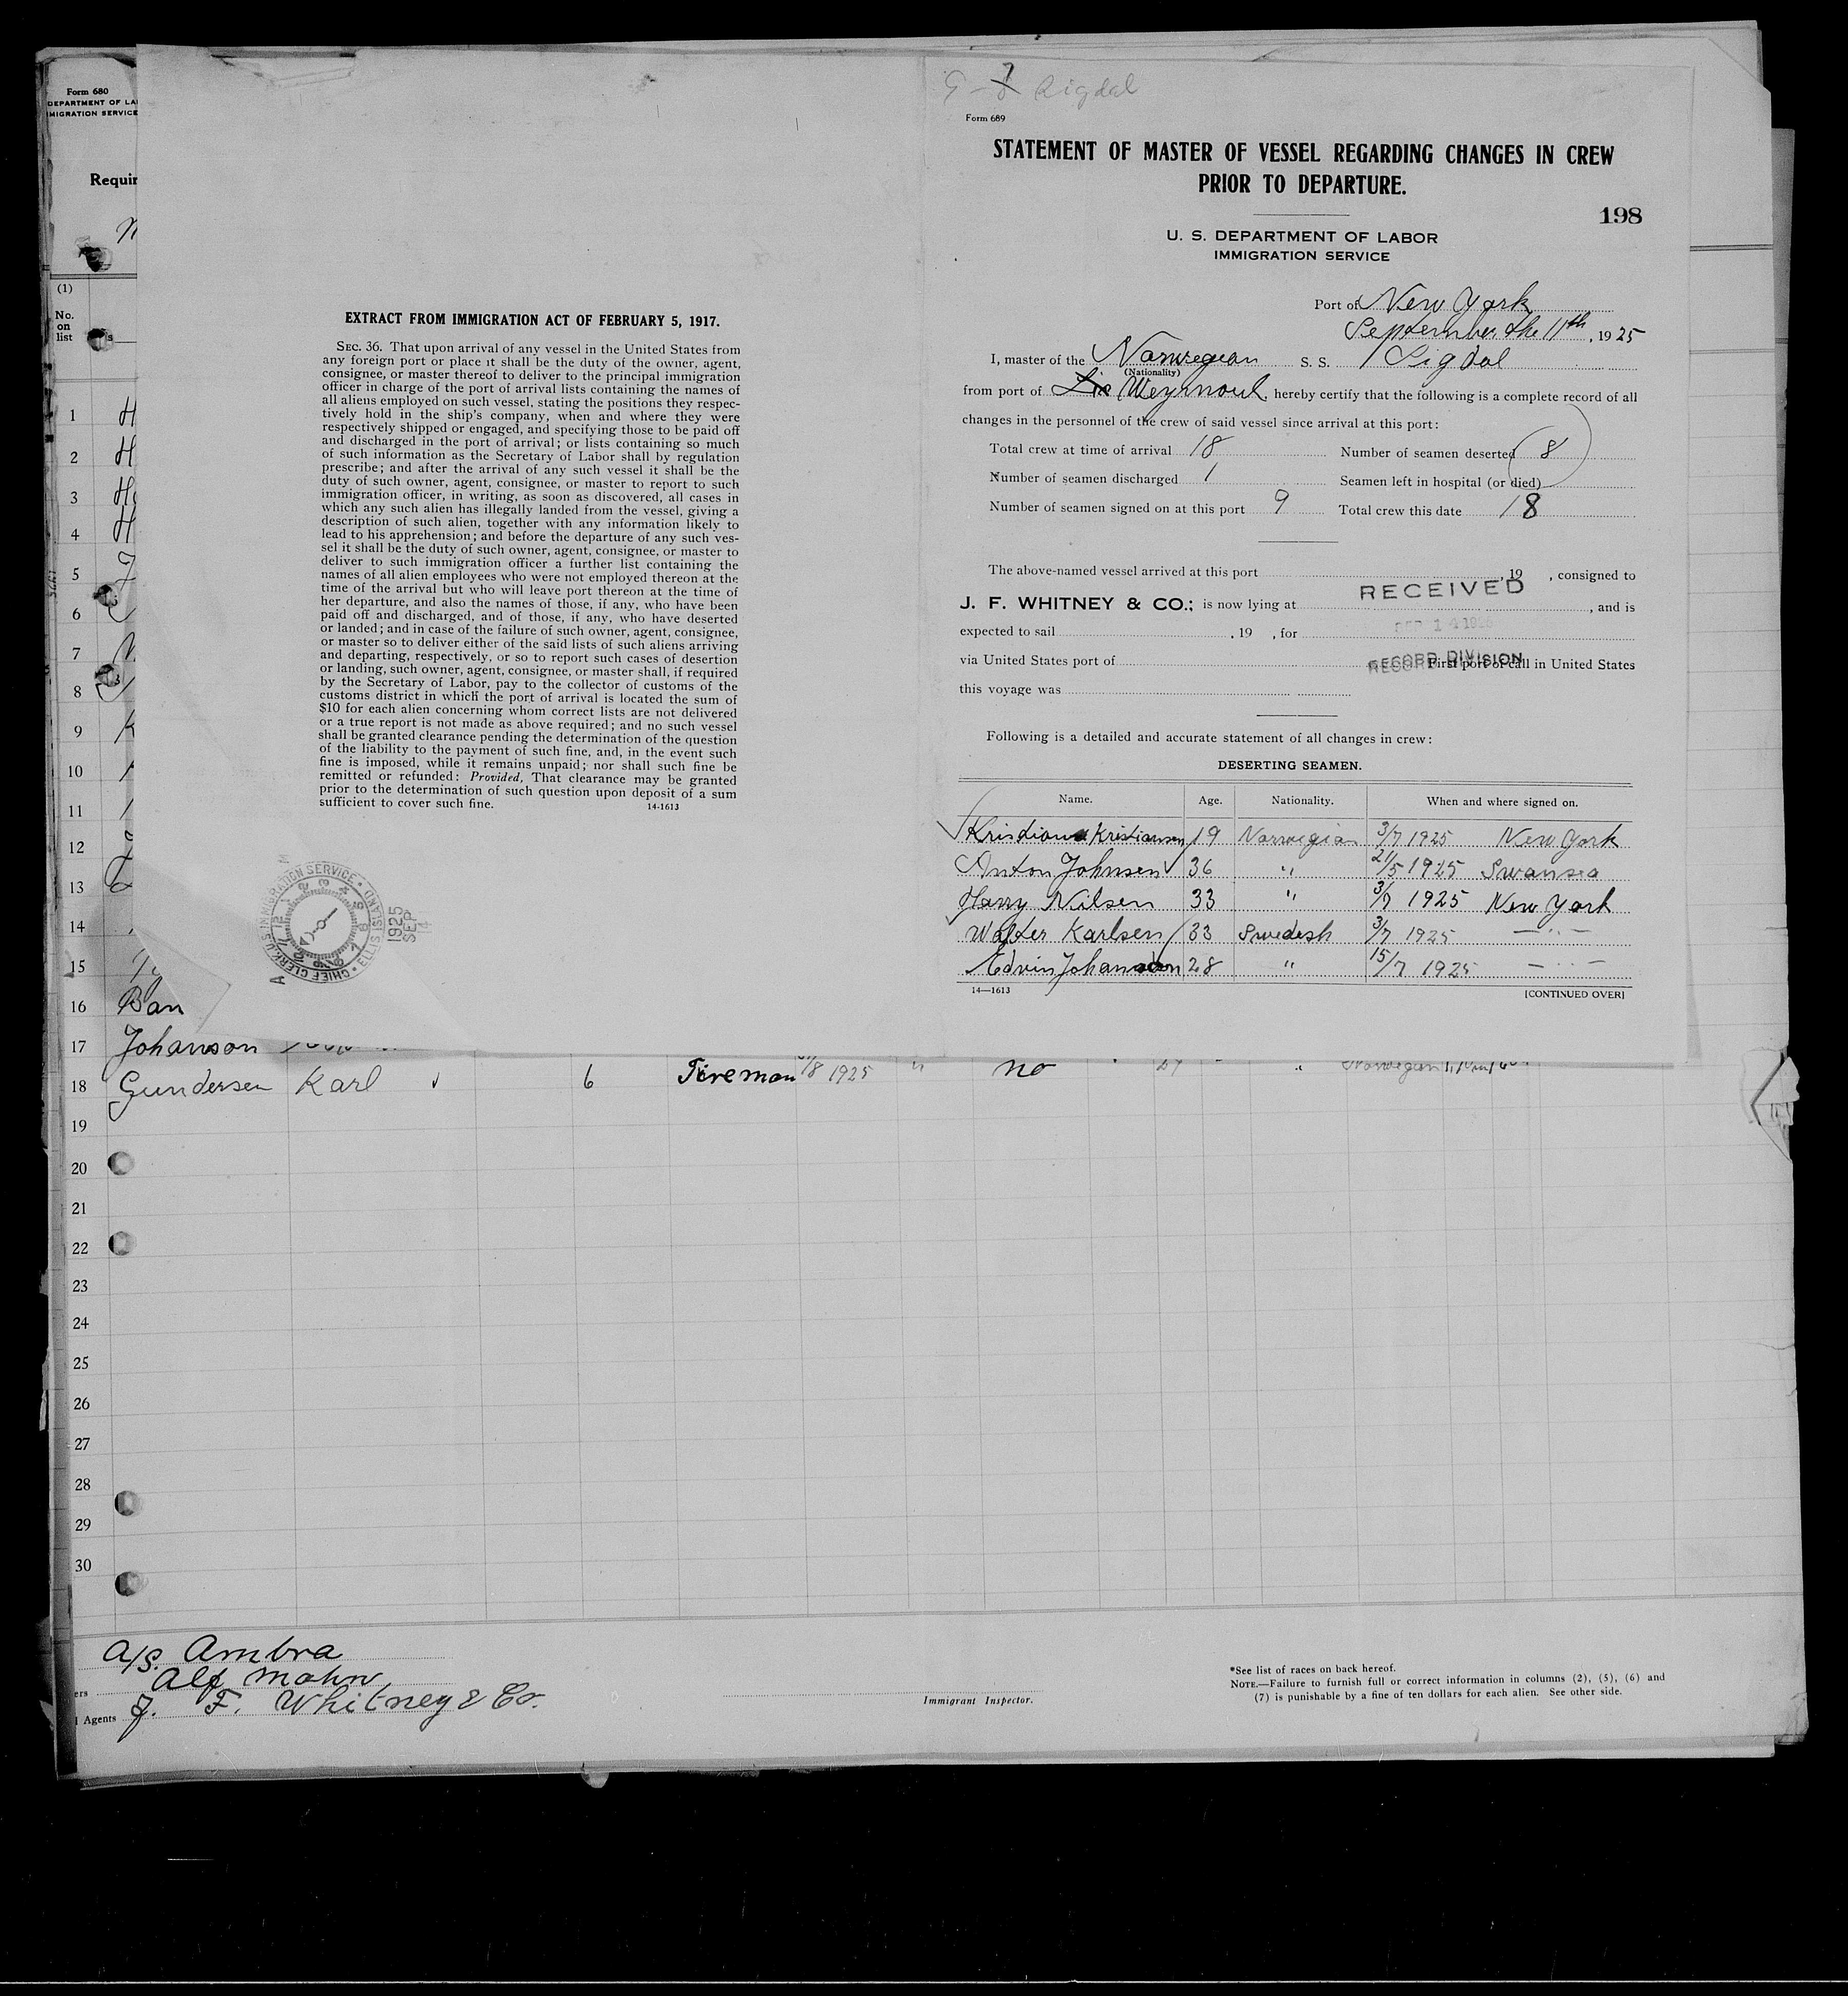 Form 680
DEPARTMENT OF LA
MIGRATION SERVICE
Requir
(1)
No.
on
list
1 H
2 H
3 H
4 H
5
6
7
8
9 K
10
11
12
13
14
15
16 Ban
17 Johanson
18 Gundersen Karl 6 Fireman /8 1925 " no " Norwegian
19
20
21
22
23
24
25
26
27
28
29
30
A/S. Ambra
ers Alf Mohn
l Agents J. F. Whitney & Co.
Immigrant Inspector.
*See list of races on back hereof.
NOTE.—Failure to furnish full or correct information in columns (2), (5), (6) and
(7) is punishable by a fine of ten dollars for each alien. See other side.
EXTRACT FROM IMMIGRATION ACT OF FEBRUARY 5, 1917.
SEC. 36. That upon arrival of any vessel in the United States from
any foreign port or place it shall be the duty of the owner, agent,
consignee, or master thereof to deliver to the principal immigration
officer in charge of the port of arrival lists containing the names of
all aliens employed on such vessel, stating the positions they respec-
tively hold in the ship's company, when and where they were
respectively shipped or engaged, and specifying those to be paid off
and discharged in the port of arrival; or lists containing so much
of such information as the Secretary of Labor shall by regulation
prescribe; and after the arrival of any such vessel it shall be the
duty of such owner, agent, consignee, or master to report to such
immigration officer, in writing, as soon as discovered, all cases in
which any such alien has illegally landed from the vessel, giving a
description of such alien, together with any information likely to
lead to his apprehension; and before the departure of any such ves-
sel it shall be the duty of such owner, agent, consignee, or master to
deliver to such immigration officer a further list containing the
names of all alien employees who were not employed thereon at the
time of the arrival but who will leave port thereon at the time of
her departure, and also the names of those, if any, who have been
paid off and discharged, and of those, if any, who have deserted
or landed; and in case of the failure of such owner, agent, consignee,
or master so to deliver either of the said lists of such aliens arriving
and departing, respectively, or so to report such cases of desertion
or landing, such owner, agent, consignee, or master shall, if required
by the Secretary of Labor, pay to the collector of customs of the
customs district in which the port of arrival is located the sum of
$10 for each alien concerning whom correct lists are not delivered
or a true report is not made as above required; and no such vessel
shall be granted clearance pending the determination of the question
of the liability to the payment of such fine, and, in the event such
fine is imposed, while it remains unpaid; nor shall such fine be
remitted or refunded: Provided, That clearance may be granted
prior to the determination of such question upon deposit of a sum
sufficient to cover such fine. 14-1613
U.S. IMMIGRATION SERVICE • ELLIS ISLAND • CHIEF CLERK
1925 SEP 14
Sigdal
Form 689
STATEMENT OF MASTER OF VESSEL REGARDING CHANGES IN CREW
PRIOR TO DEPARTURE.
198
U. S. DEPARTMENT OF LABOR
IMMIGRATION SERVICE
Port of New York
September the 11th, 1925
I, master of the Norwegian S. S. Sigdal
(Nationality)
from port of Weymoul, hereby certify that the following is a complete record of all
changes in the personnel of the crew of said vessel since arrival at this port:
Total crew at time of arrival 18 Number of seamen deserted 8
Number of seamen discharged 1 Seamen left in hospital (or died)
Number of seamen signed on at this port 9 Total crew this date 18
The above-named vessel arrived at this port , 19 , consigned to
RECEIVED
J. F. WHITNEY & CO.; is now lying at , and is
SEP 14 1925
expected to sail , 19 , for
via United States port of First port of call in United States
RECORD DIVISION
this voyage was
Following is a detailed and accurate statement of all changes in crew:
DESERTING SEAMEN.
Name. Age. Nationality. When and where signed on.
Kristian Kristiansen 19 Norwegian 3/7 1925 New York
Anton Johnsen 36 " 21/5 1925 Swansea
Harry Nilsen 33 " 3/7 1925 New York
Walter Karlsen 33 Swedesh 3/7 1925 — " —
Edvin Johansson 28 " 15/7 1925 — " —
14—1613 [CONTINUED OVER]